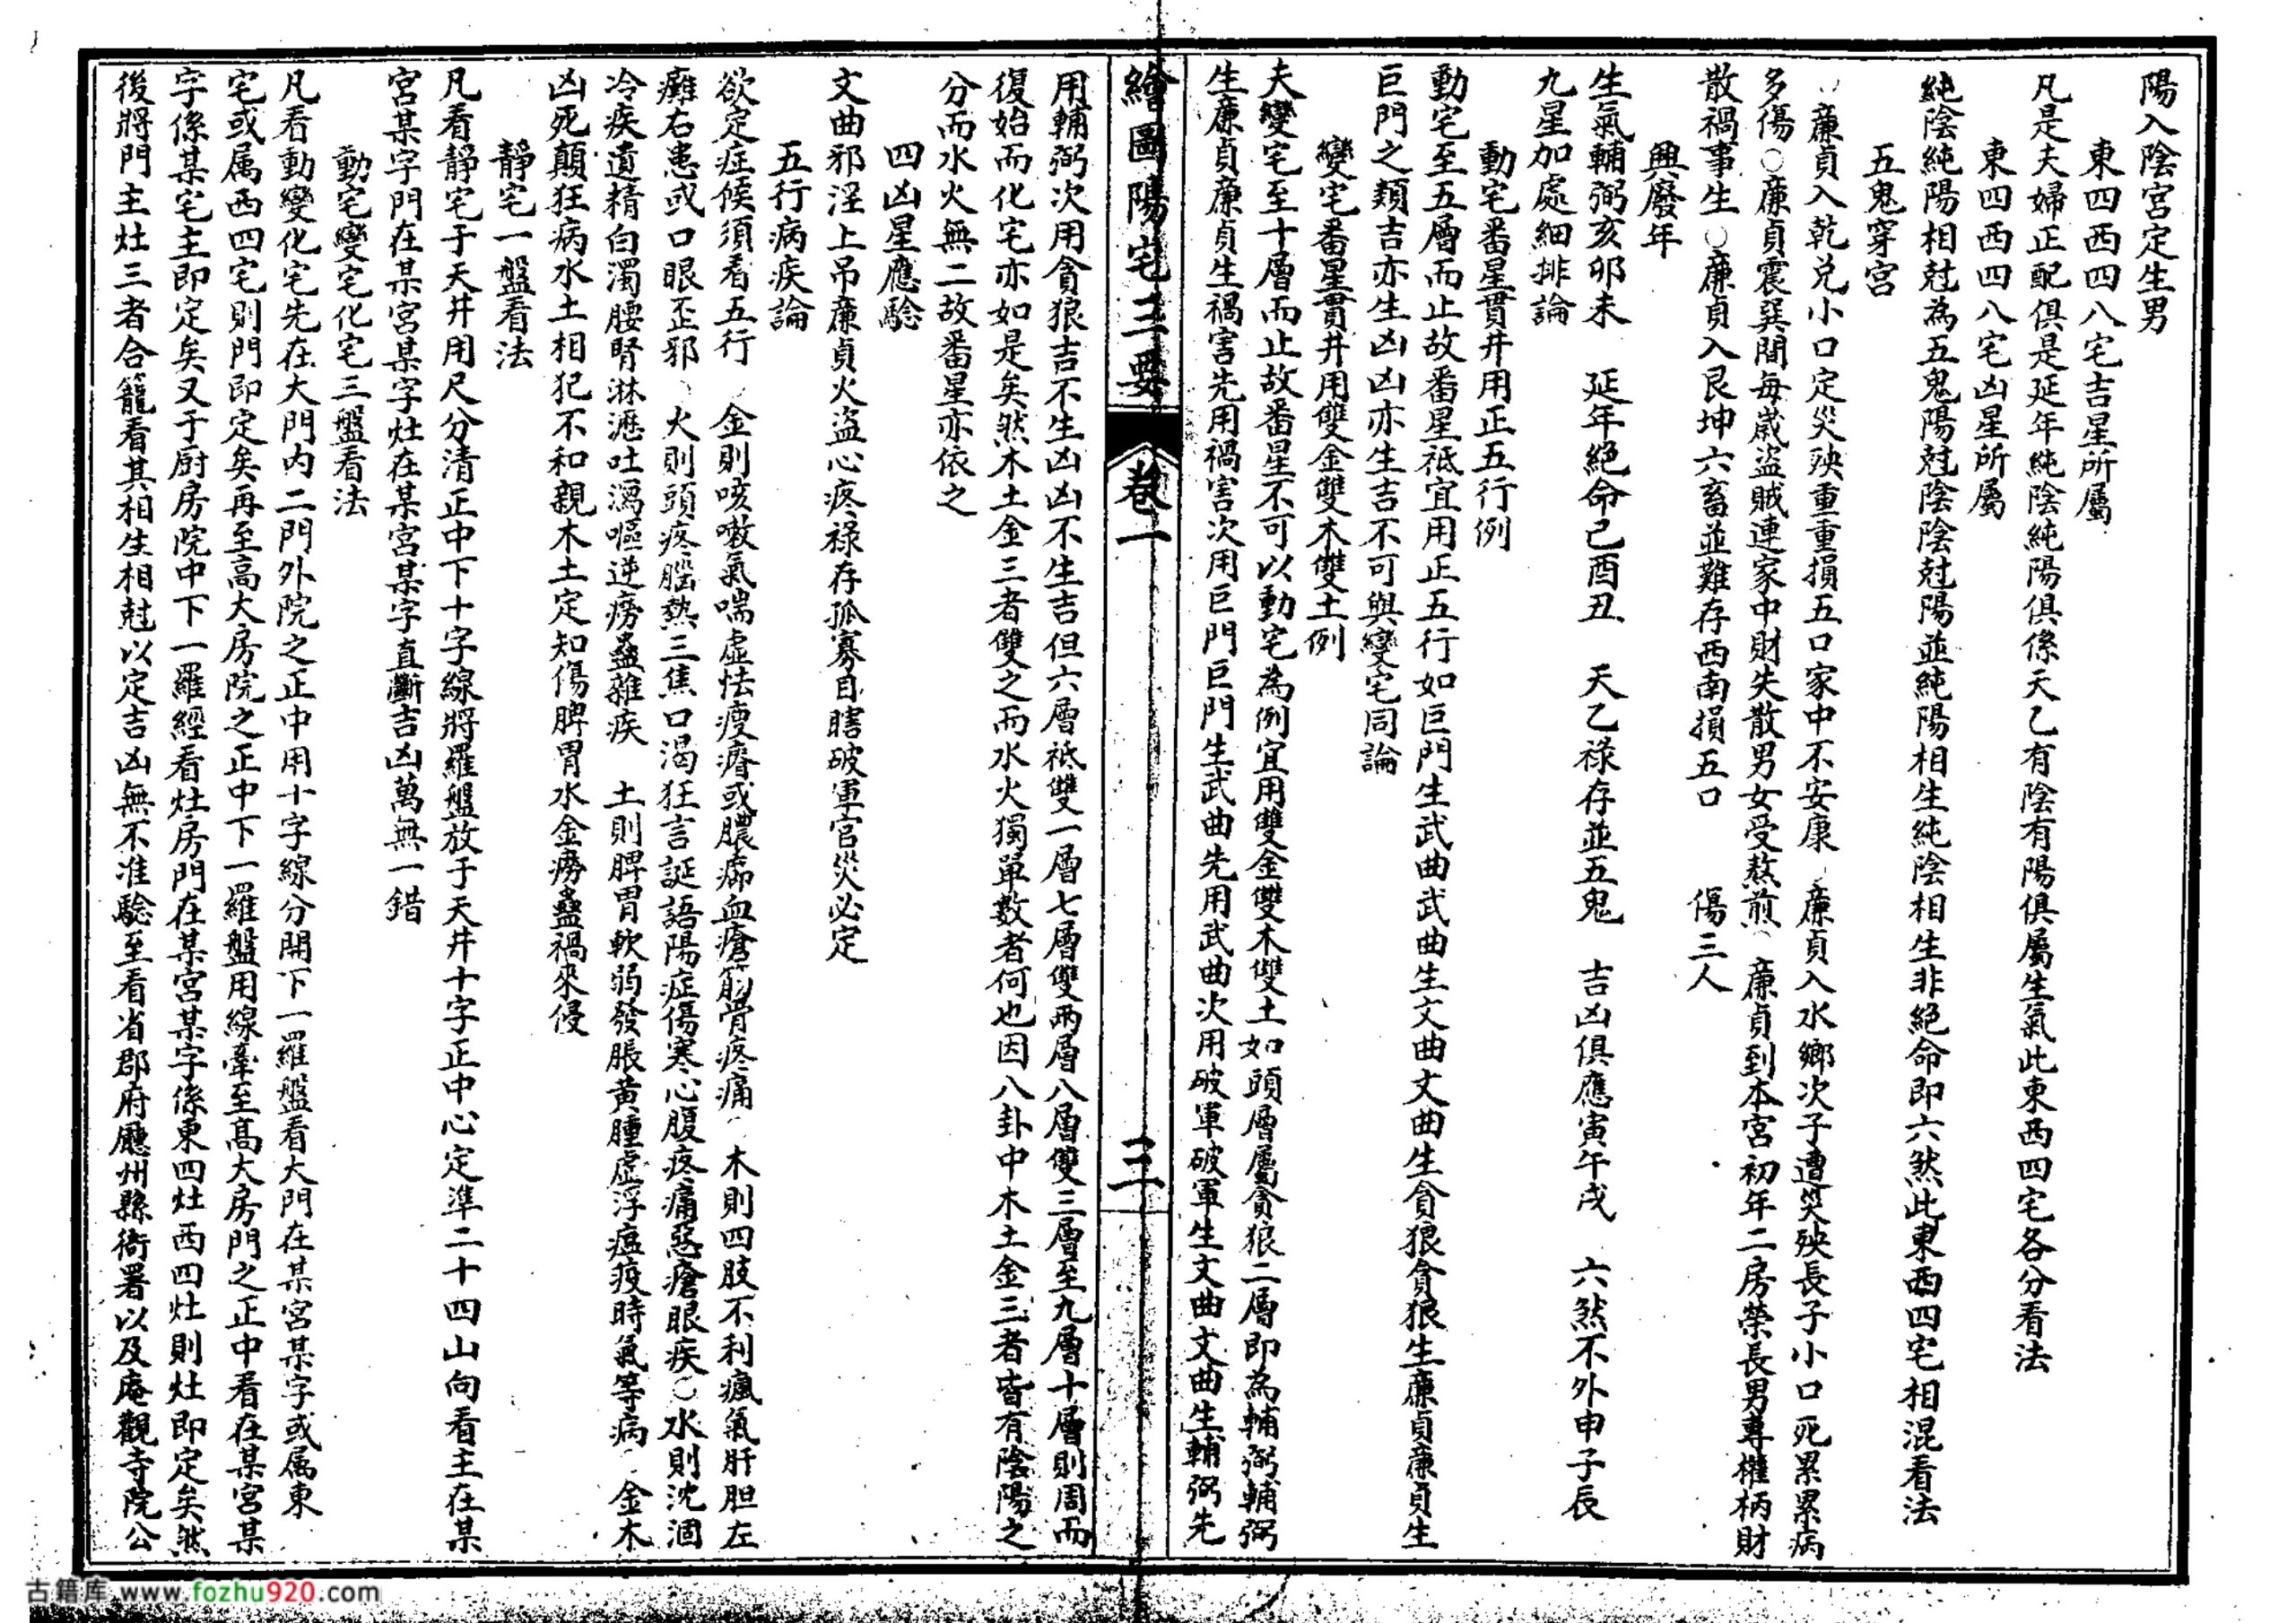 陽入陰宮定生男
東四西四八宅吉星所屬
凡是夫婦正配俱是延年純陰純陽俱係天乙有陰有陽俱屬生氣此東西四宅各分看法
東四西四八宅凶星所屬
純陰純陽相尅為五鬼陽尅陰陰尅陽並純陽相生純陰相生非絕命即六煞此東西四宅相混看法
五鬼穿宮
○廉貞入乾兌小口定災殃重重損五口家中不安康○廉貞入水鄉次子遭災殃長子小口死累累病
多傷○廉貞震巽間每歲盜賊連家中財失散男女受熬煎○廉貞到本宮初年二房榮長男專權柄財
散禍事生○廉貞入艮坤六畜並難存西南損五口 傷三人
興廢年
生氣輔弼亥卯未 延年絕命己酉丑 天乙祿存並五鬼 吉凶俱應寅午戌 六煞不外申子辰
九星加處細排論
動宅番星貫井用正五行例
動宅至五層而止故番星祗宜用正五行如巨門生武曲武曲生文曲文曲生貪狼貪狼生廉貞廉貞生
巨門之類吉亦生凶凶亦生吉不可與變宅同論
變宅番星貫井用雙金雙木雙土例
夫變宅至十層而止故番星不可以動宅為例宜用雙金雙木雙土如頭層屬貪狼二層即為輔弼輔弼
生廉貞廉貞生禍害先用禍害次用巨門巨門生武曲先用武曲次用破軍破軍生文曲文曲生輔弼先
繪圖陽宅三要 卷一 三
用輔弼次用貪狼吉不生凶凶不生吉但六層祗雙一層七層雙兩層八層雙三層至九層十層則周而
復始而化宅亦如是矣然木土金三者雙之而水火獨單數者何也因八卦中木土金三者皆有陰陽之
分而水火無二故番星亦依之
四凶星應驗
文曲邪淫上吊廉貞火盜心疼祿存孤寡目瞎破軍官災必定
五行病疾論
欲定症候須看五行○金則咳嗽氣喘虛怯瘦瘠或膿痈血瘡筋骨疼痛○木則四肢不利瘋氣肝胆左
癱右患或口眼歪邪○火則頭疼腦熱三焦口渴狂言誕語陽症傷寒心腹疼痛惡瘡眼疾○水則沈涸
冷疾遺精白濁腰腎淋瀝吐瀉嘔逆癆蠱雜疾 土則脾胃軟弱發脹黃腫虛浮瘟疫時氣等病○金木
凶死顛狂病水土相犯不和親木土定知傷脾胃水金癆蠱禍來侵
靜宅一盤看法
凡看靜宅于天井用尺分清正中下十字線將羅盤放于天井十字正中心定準二十四山向看主在某
宮某字門在某宮某字灶在某宮某字直斷吉凶萬無一錯
動宅變宅化宅三盤看法
凡看動變化宅先在大門內二門外院之正中用十字線分開下一羅盤看大門在某宮某字或属東
宅或属西四宅則門即定矣再至高大房院之正中下一羅盤用線牽至高大房門之正中看在某宮某
字係某宅主即定矣又于厨房院中下一羅經看灶房門在某宮某字係東四灶西四灶則灶即定矣然
後將門主灶三者合籠看其相生相尅以定吉凶無不准驗至看省郡府廳州縣衙署以及庵觀寺院公
古籍库 www.fozhu920.com